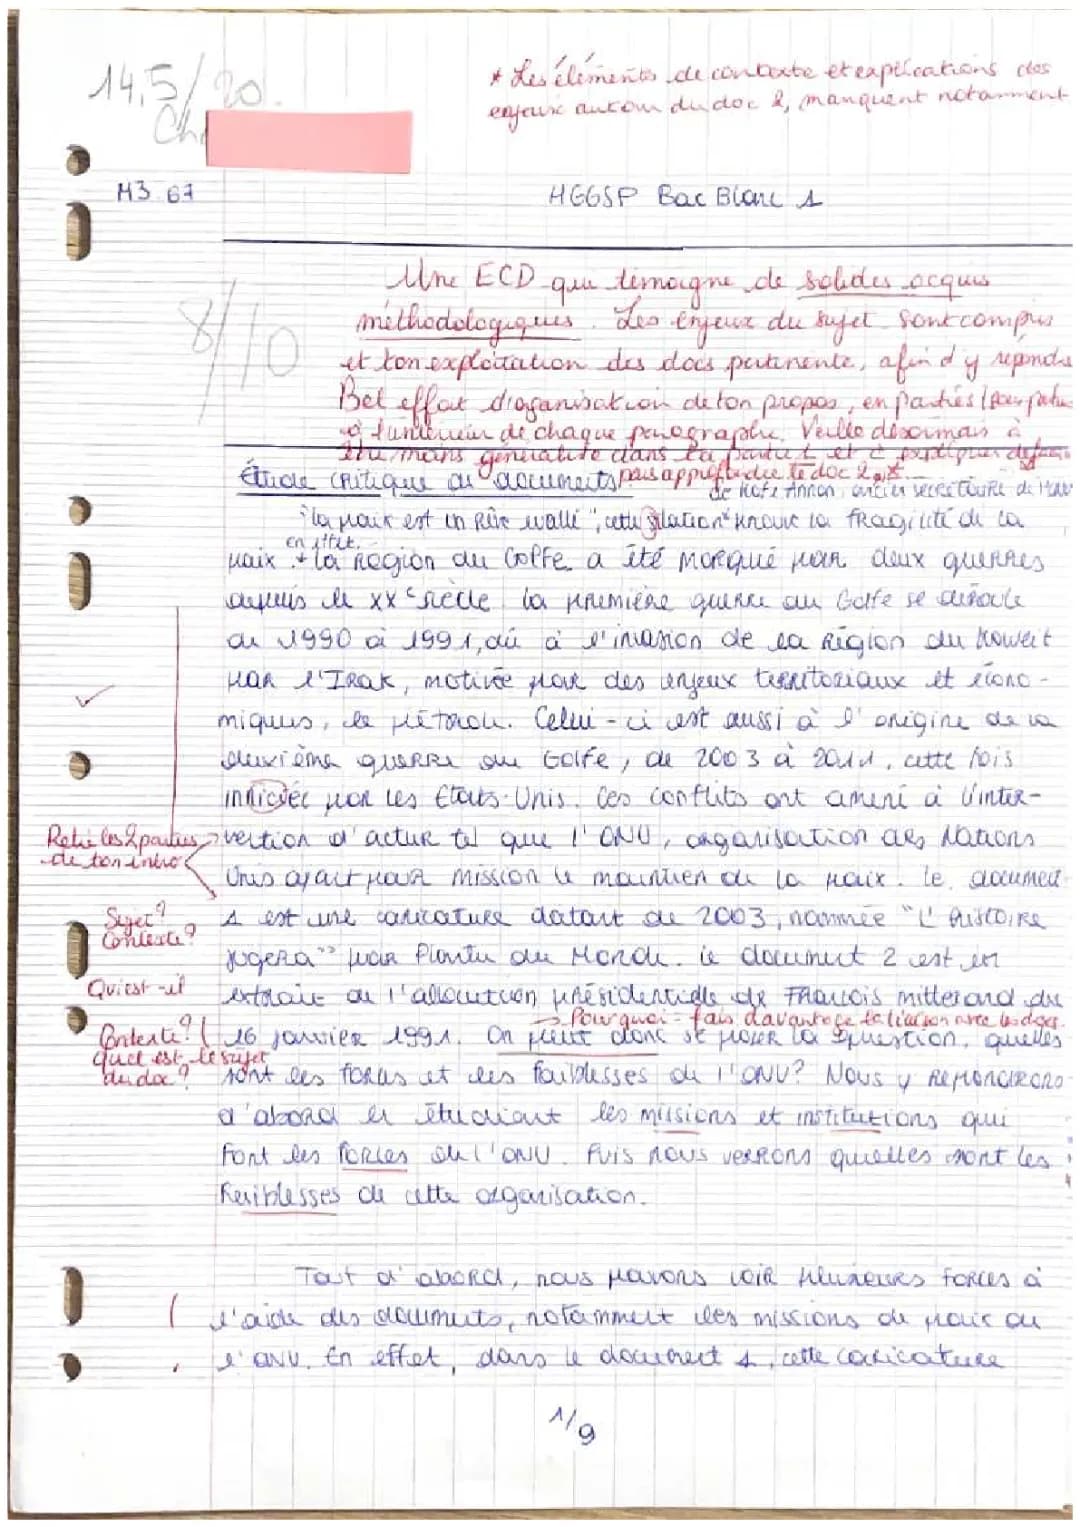 14,5/20.
* Les éléments de contexte et explications des
enjeux autour du doc 2, manquent notamment
M3.67
HGGSP Bac Blanc 1
8/10
Une ECD qui témoigne de solides acquis
méthodologiques. Les enjeux du sujet sont compris
et ton exploitation des docs pertinente, afin d'y répondre
Bel effort d'organisation de ton propos, en parties
l'intérieur de chaque paragraphe. Veille désormais à
être moins générale dans ta partie 1 et à expliquer
Étude critique de documents
pas approfondie le doc 2 *
de Kofi Annan, ancien secrétaire de
"la paix est un rêve", cette citation prouve la fragilité de la
paix. + la région du Golfe a été marqué par deux guerres
en effet,
depuis le XXe siècle la première guerre du Golfe se déroule
de 1990 à 1991, dû à l'invasion de la région du Koweït
par l'Irak, motivée par des enjeux territoriaux et écono-
miques, le pétrole. Celui-ci est aussi à l'origine de la
deuxième guerre du Golfe, de 2003 à 2011, cette fois
par les États-Unis. Ces conflits ont amené à l'inter-
Relie les 2 parties de ton intro
vention d'acteur tel que l'ONU, organisation des Nations
Unis ayant pour mission le maintien de la paix. Le document
Sujet ? Contexte ?
1 est une caricature datant de 2003, nommée "L'histoire
jugera" par Plantu du Monde. Le document 2 est un
Qui est-il
extrait de l'allocution présidentielle de François Mitterand du
→ Pourquoi - fais davantage la liaison avec les docs.
Contexte ? Quel est le sujet du doc ?
16 janvier 1991. On peut donc se poser la question, quelles
sont les forces et les faiblesses de l'ONU? Nous y répondrons
d'abord en étudiant les missions et institutions qui
font les forces de l'ONU. Puis nous verrons quelles sont les
faiblesses de cette organisation.
Tout d'abord, nous pouvons voir plusieurs forces à
l'aide des documents, notamment les missions de paix de
l'ONU. En effet, dans le document 1, cette caricature
1/9